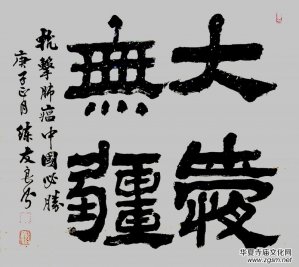 大愛
無疆
抗擊肺瘟中國必勝
庚子正月 練友良书
华夏寺庙文化网
www.zgsm.net